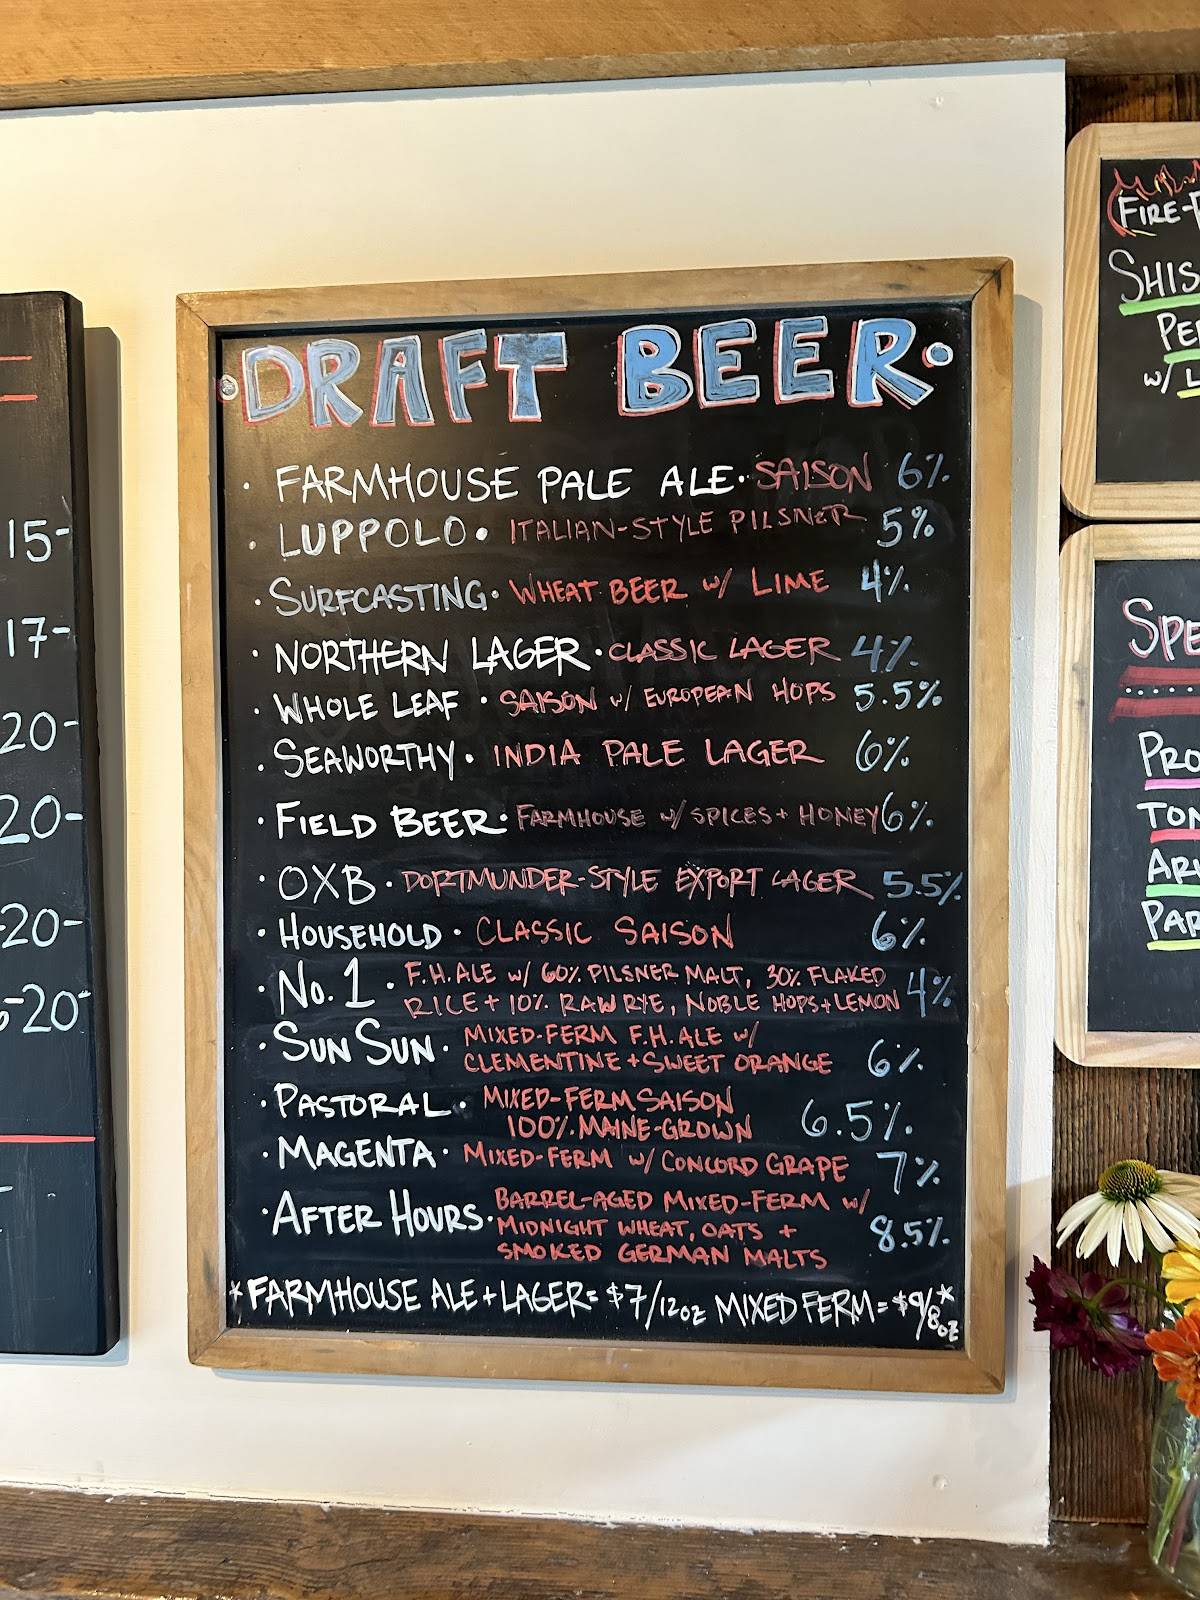 DRAFT BEER
FARMHOUSE PALE ALE · SAISON 6%
LUPPOLO · ITALIAN-STYLE PILSNER 5%
SURFCASTING · WHEAT BEER w/ LIME 4%
NORTHERN LAGER · CLASSIC LAGER 4%
WHOLE LEAF · SAISON w/ EUROPEAN HOPS 5.5%
SEAWORTHY · INDIA PALE LAGER 6%
FIELD BEER · FARMHOUSE w/ SPICES + HONEY 6%
OXB · DORTMUNDER-STYLE EXPORT LAGER 5.5%
HOUSEHOLD · CLASSIC SAISON 6%
No. 1 · F.H. ALE w/ 60% PILSNER MALT, 30% FLAKED
RICE + 10% RAW RYE, NOBLE HOPS + LEMON 4%
SUN SUN · MIXED-FERM F.H. ALE w/
CLEMENTINE + SWEET ORANGE 6%
PASTORAL · MIXED-FERM SAISON
100% MAINE-GROWN 6.5%
MAGENTA · MIXED-FERM w/ CONCORD GRAPE 7%
AFTER HOURS · BARREL-AGED MIXED-FERM w/
MIDNIGHT WHEAT, OATS + 8.5%
SMOKED GERMAN MALTS
*FARMHOUSE ALE + LAGER = $7/12oz MIXED FERM = $9/8oz*
15-
17-
20-
20-
-20-
-20-
FIRE-
SHIS
PE
w/ L
SPE
PRO
TON
AR
PAR